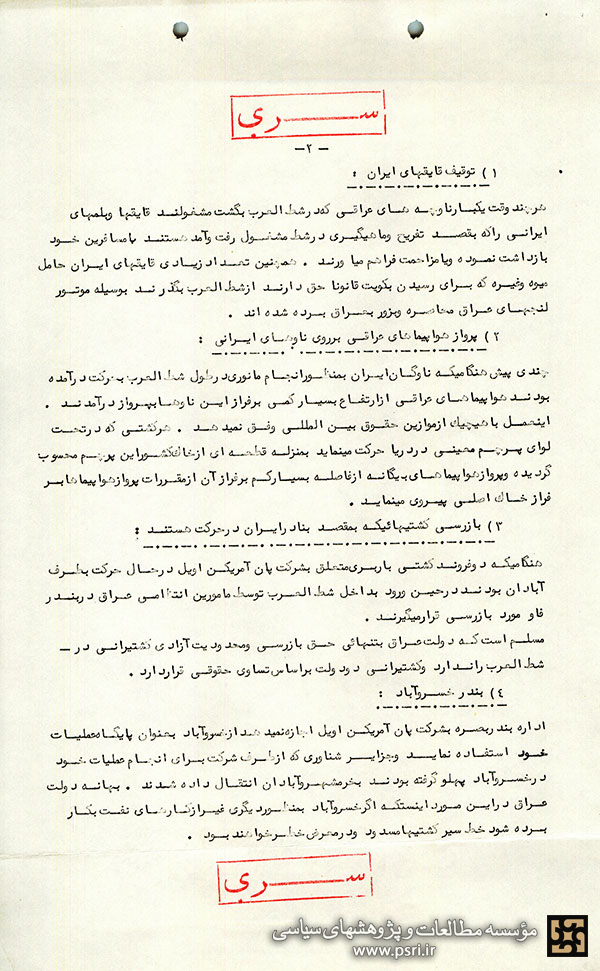 سری
-۲-
۱) توقیف قایقهای ایران :
هرچند وقت یکبار ناوچه های عراقی که در شط العرب بگشت مشغولند قایقها وبلمهای
ایرانی راکه بقصد تفریح وماهیگیری در شط مشغول رفت وآمد هستند با مسافرین خود
بازداشت نموده ویا مزاحمت فراهم میآورند . همچنین تعداد زیادی قایقهای ایران حامل
میوه وغیره که برای رسیدن بکویت قانونا حق دارند ازشط العرب بگذرند بوسیله موتور
لنجهای عراق محاصره وبزور بعراق برده شده اند .
۲) پرواز هواپیماهای عراقی برروی ناوهای ایرانی :
چندی پیش هنگامیکه ناوگان ایران بمنظور انجام مانوری در طول شط العرب بحرکت درآمده
بودند هواپیماهای عراقی ازارتفاع بسیار کمی برفراز این ناوها بپرواز درآمدند .
اینعمل با هیچیک ازموازین حقوق بین المللی وفق نمیدهد . هرکشتی که درتحت
لوای پرچم معینی در دریا حرکت مینماید بمنزله قطعه ای ازخاک کشور این پرچم محسوب
گردیده وپرواز هواپیماهای بیگانه ازفاصله بسیار کم برفراز آن ازمقررات پرواز هواپیماها بر
فراز خاک اصلی پیروی مینماید .
۳) بازرسی کشتیهائیکه بمقصد بنادر ایران در حرکت هستند :
هنگامیکه دوفروند کشتی باربری متعلق بشرکت پان آمریکن اویل درحال حرکت بطرف
آبادان بودند درحین ورود بداخل شط العرب توسط مامورین انتظامی عراق دربندر
فاو مورد بازرسی قرار میگیرند .
مسلم است که دولت عراق بتنهائی حق بازرسی ومحدودیت آزادی کشتیرانی در -
شط العرب راندارد وکشتیرانی دودولت براساس تساوی حقوقی قرار دارد .
٤) بندر خسروآباد :
اداره بندر بصره بشرکت پان آمریکن اویل اجازه نمیدهد ازخسروآباد بعنوان پایگاه عملیات
خود استفاده نماید وجزایر شناوری که ازطرف شرکت برای انجام عملیات خود
در خسروآباد پهلو گرفته بودند بخرمشهر وآبادان انتقال داده شدند . بهانه دولت
عراق در این مورد اینستکه اگر خسروآباد بمنظور دیگری غیر ازکارهای نفت بکار
برده شود خط سیر کشتیها مسدود و در معرض خطر خواهند بود .
سری
مؤسسه مطالعات و پژوهشهای سیاسی
www.psri.ir